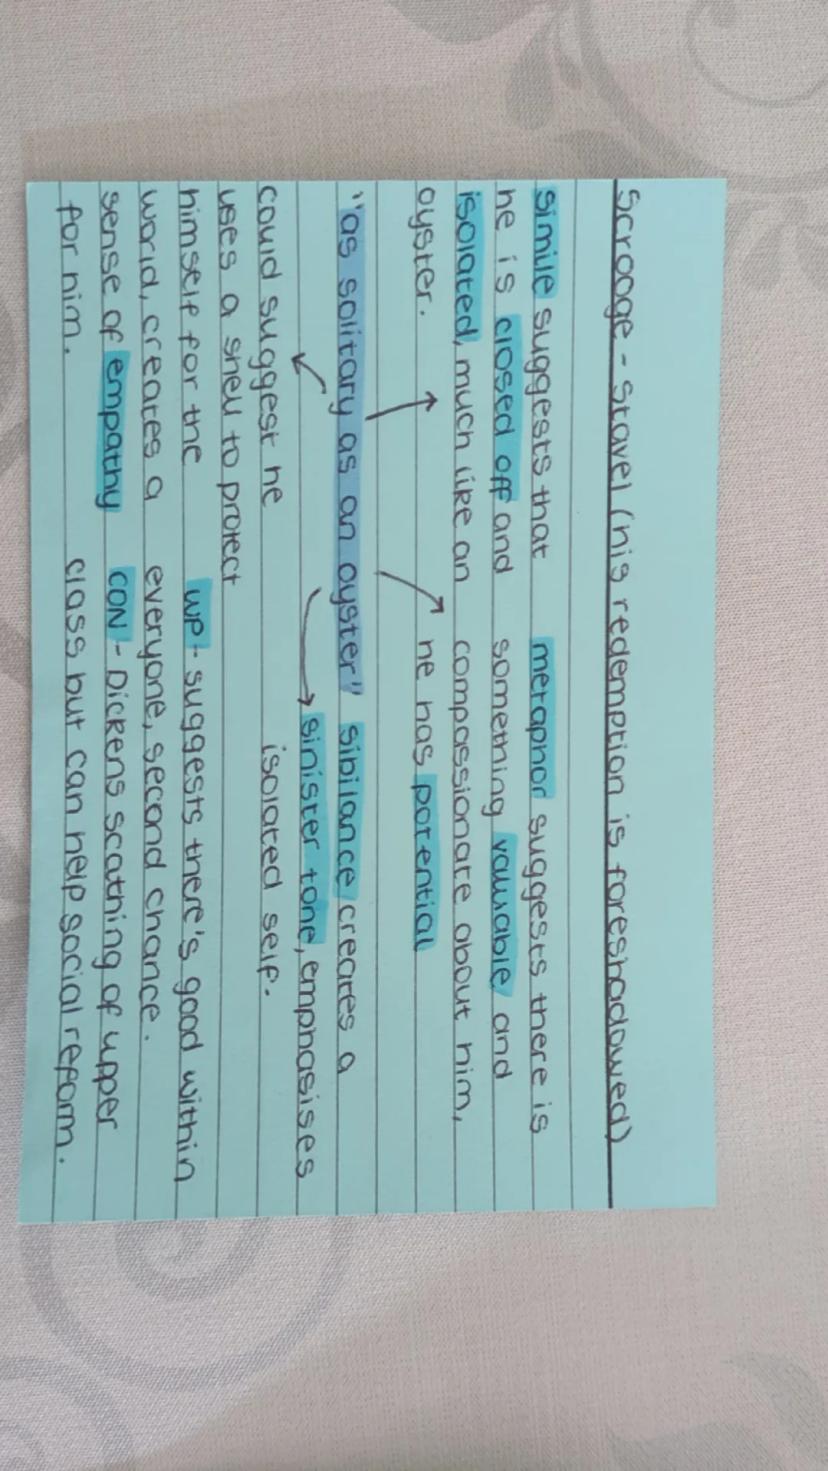 Scrooge - Stave 1 (his redemption is foreshadowed)
simile suggests that
he is closed off and
isolated, much like an
oyster.
metaphor suggests there is
something valuable and
compassionate about him,
he has potential
"as solitary as an oyster"
sibilance creates a
sinister tone, emphasises
isolated self.
could suggest he
uses a shell to protect
himself for the
world, creates a
sense of empathy
for him.
WP - suggests there's good within
everyone, second chance.
CON - Dickens scathing of upper
class but can help social reform.